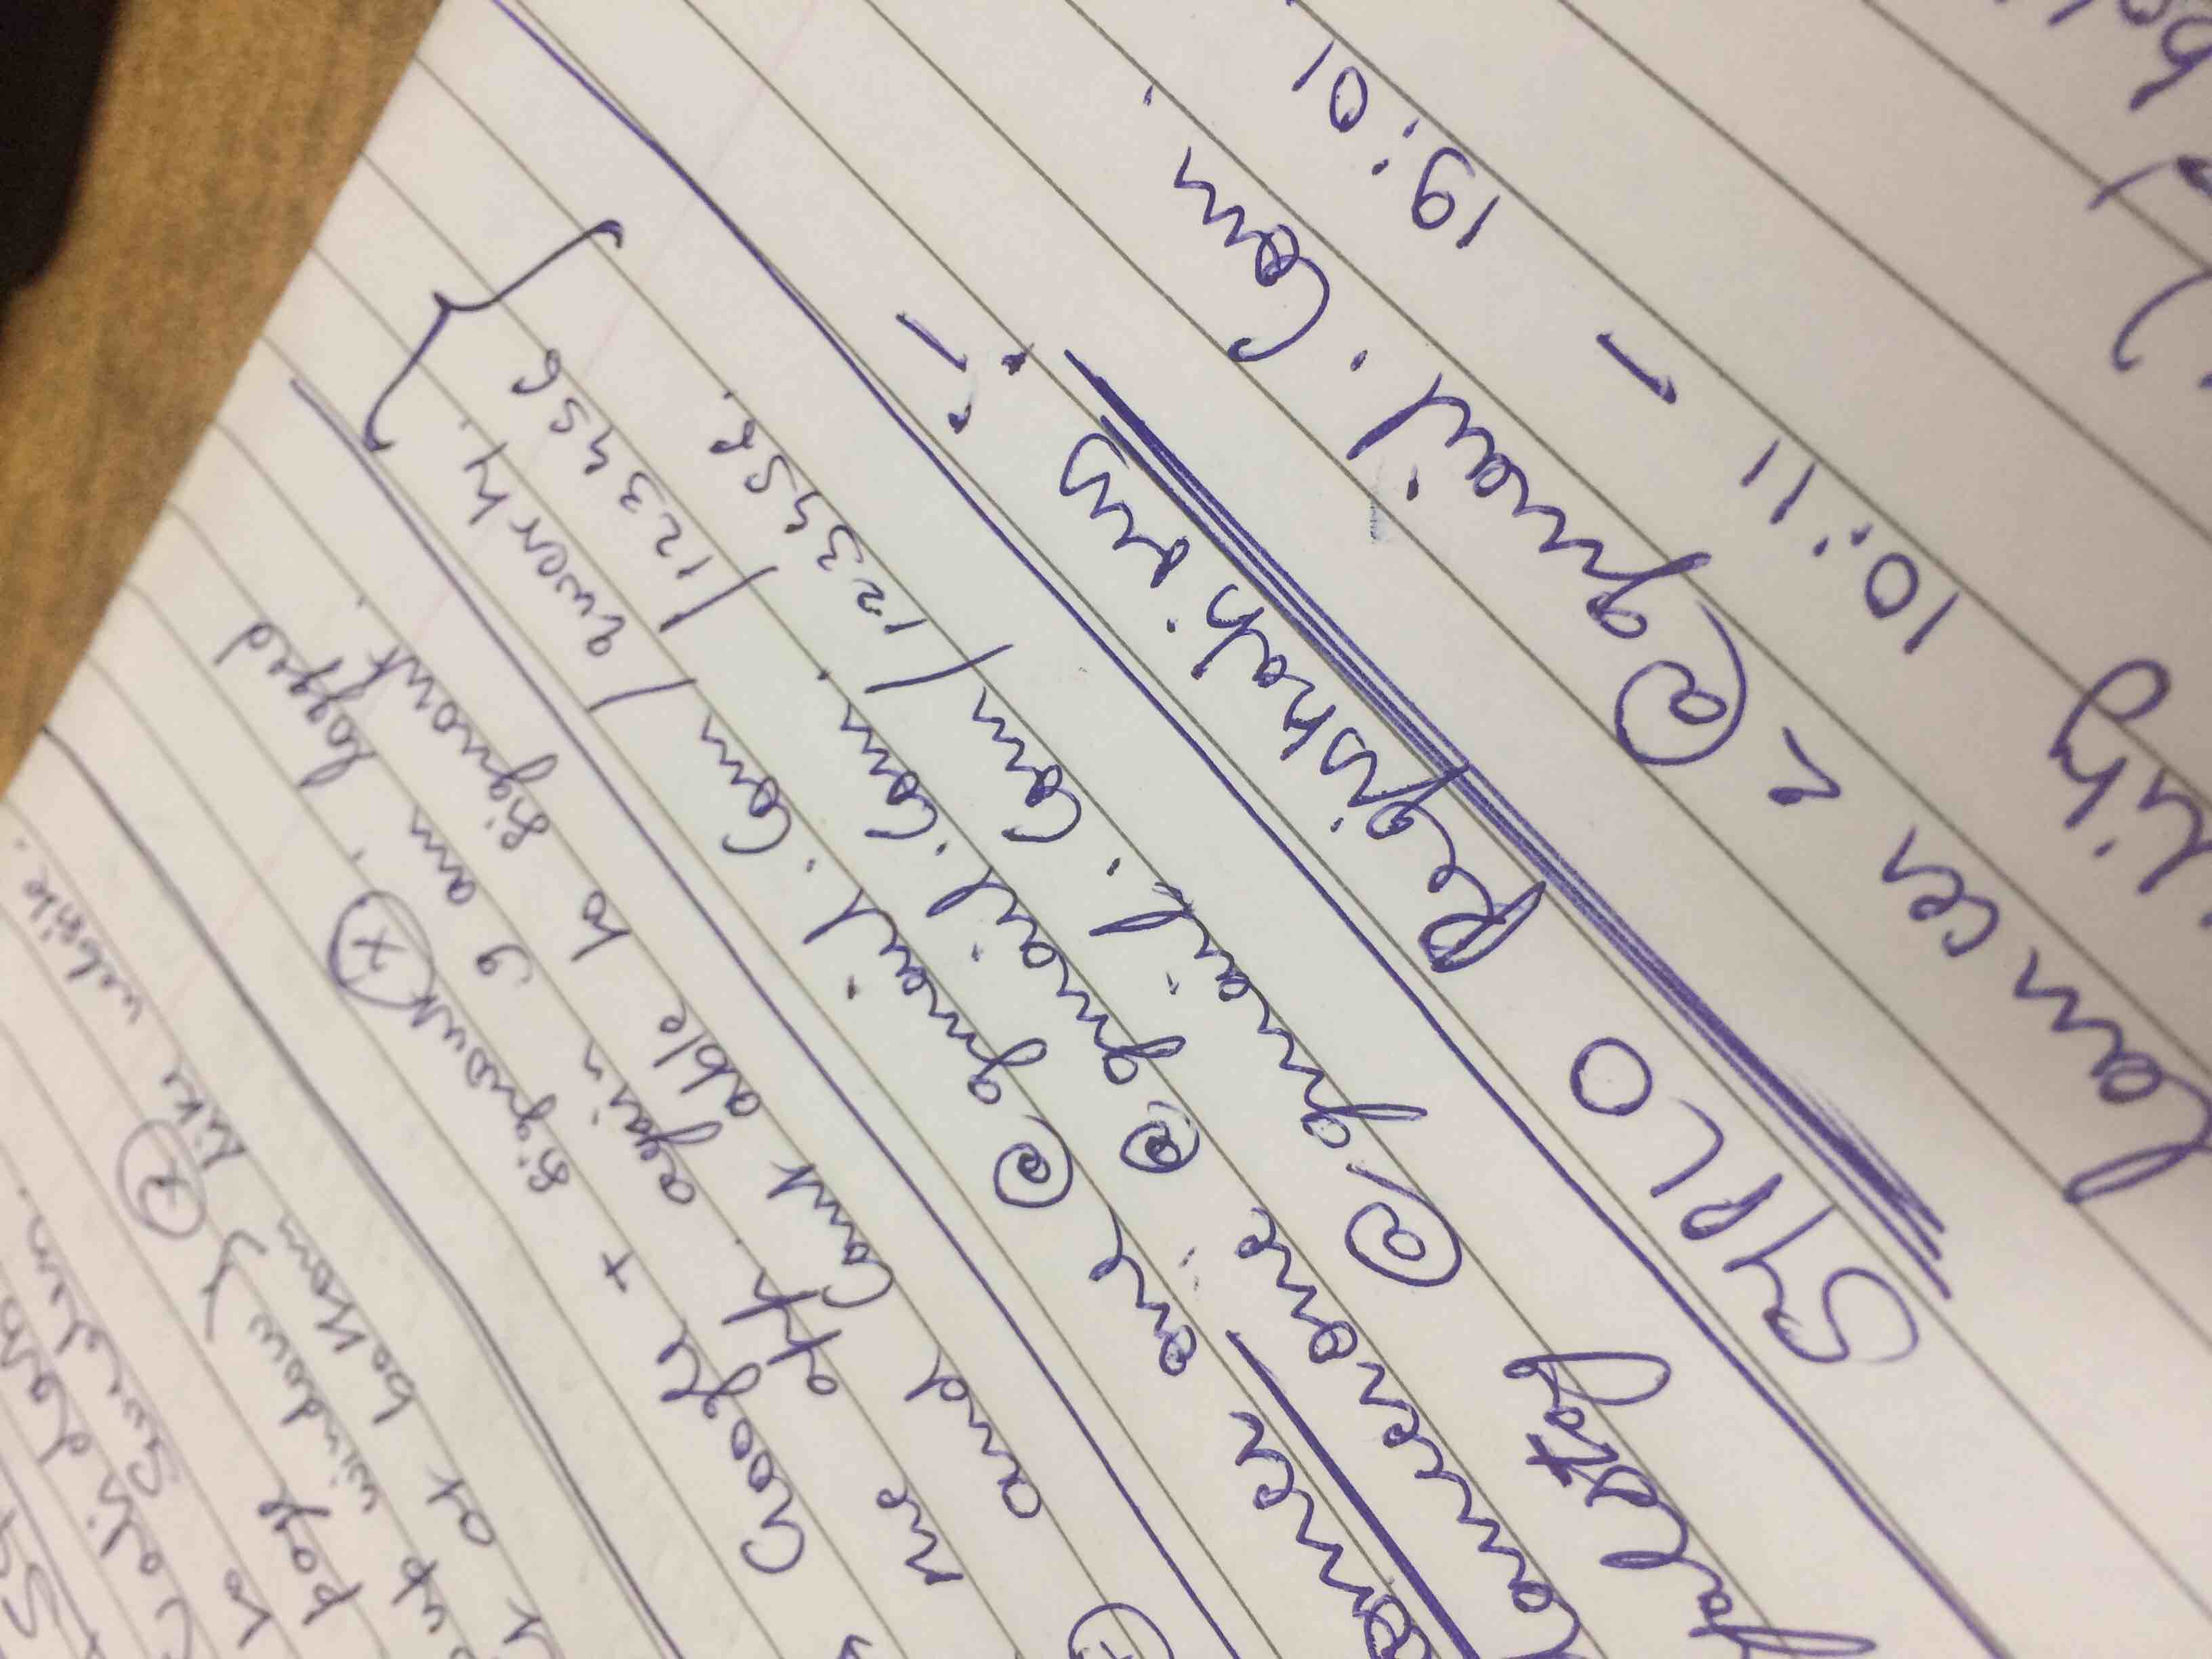 to Sweden.
page
up window } x
at bottom like website.
Google + signout x
the app. again I am logged
and cant able to signout.
omer one@gmail.com / qwerty.
lancerone@gmail.com. /123456
yalstag @gmail.com/123456.
SYPLO Registrations :-
lancer 2 @gmail.com.
lity 10:11 - 19:01